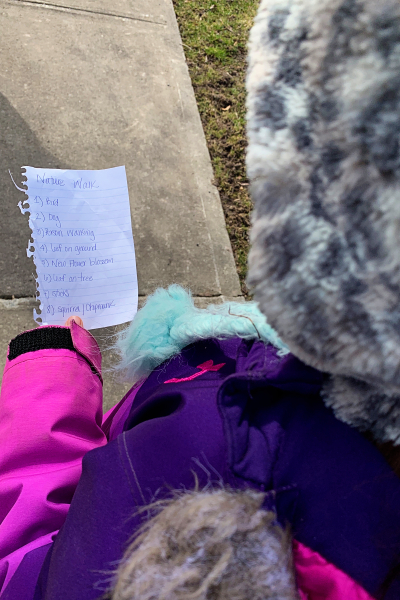 Nature Walk
1) Bird
2) Dog
3) Person Walking
4) Leaf on ground
5) New Flower blossom
6) Leaf on tree
7) Sticks
8) Squirrel / Chipmunk